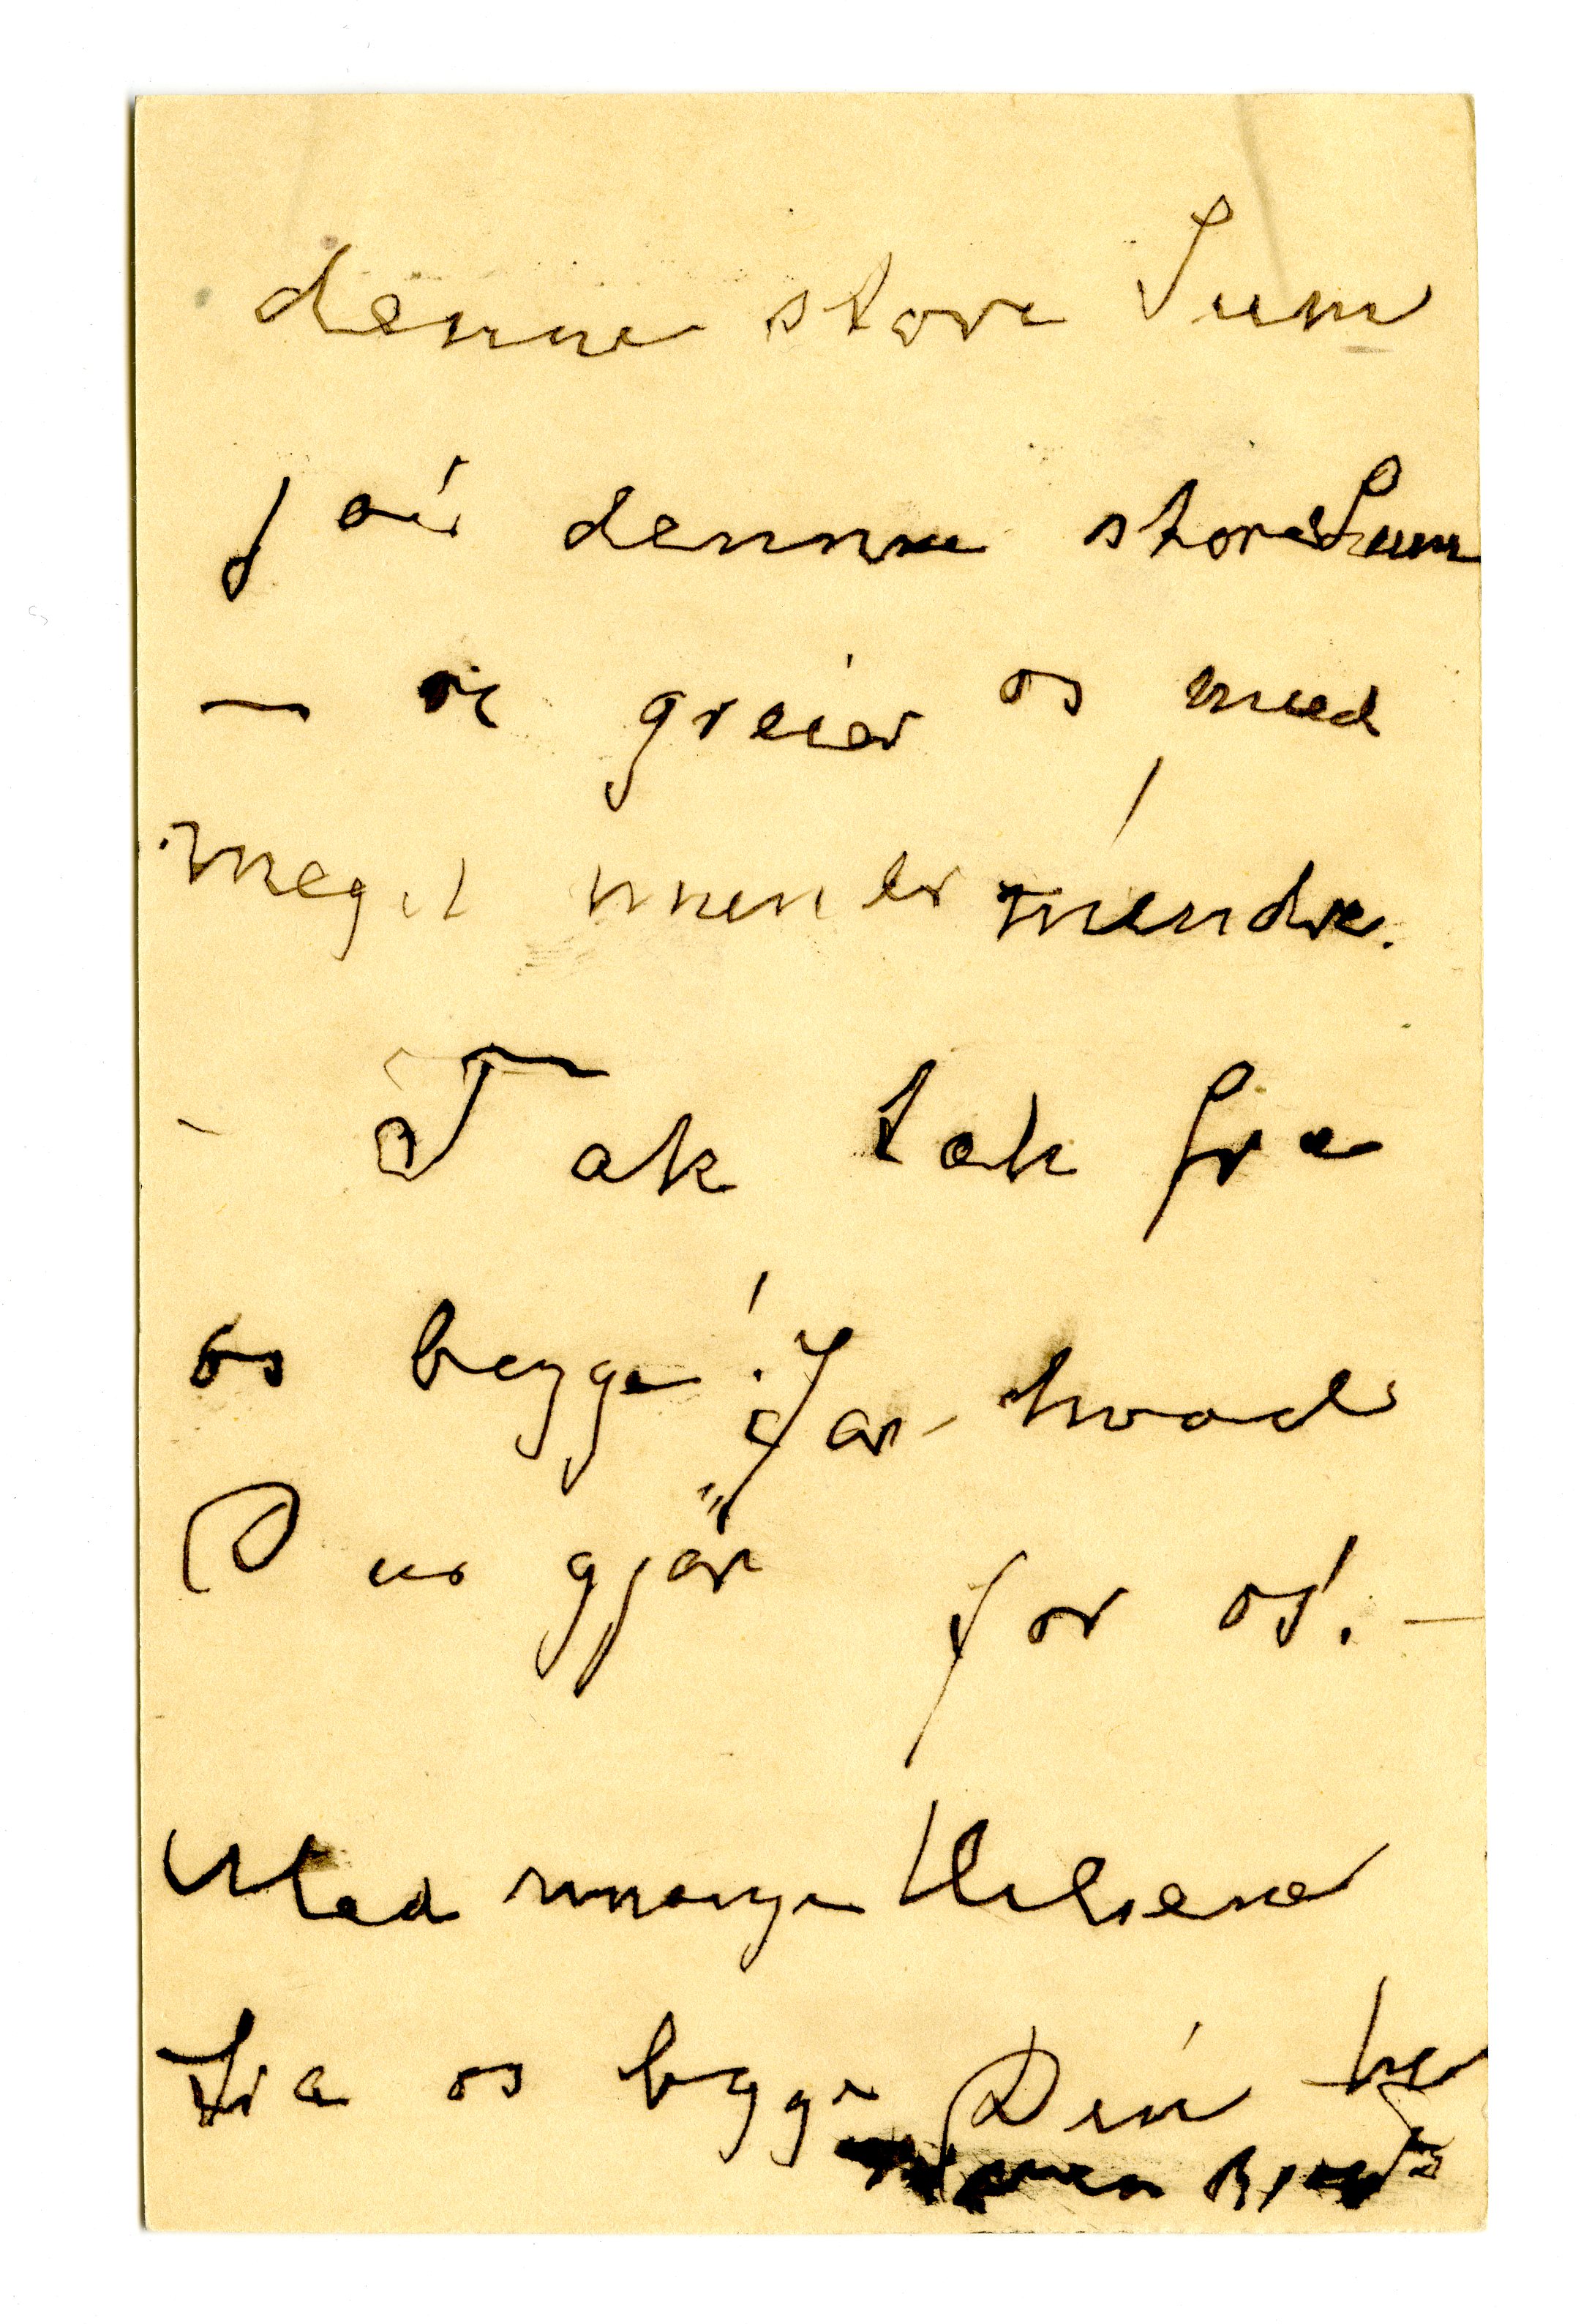 denne store Sum
på denne store Sum
— vi greier os med
meget men er mindre.
- Tak tak fra
os begge! Ja - hvad
Du gjör for os!. —
Med mange Hilsene
fra os begge Din